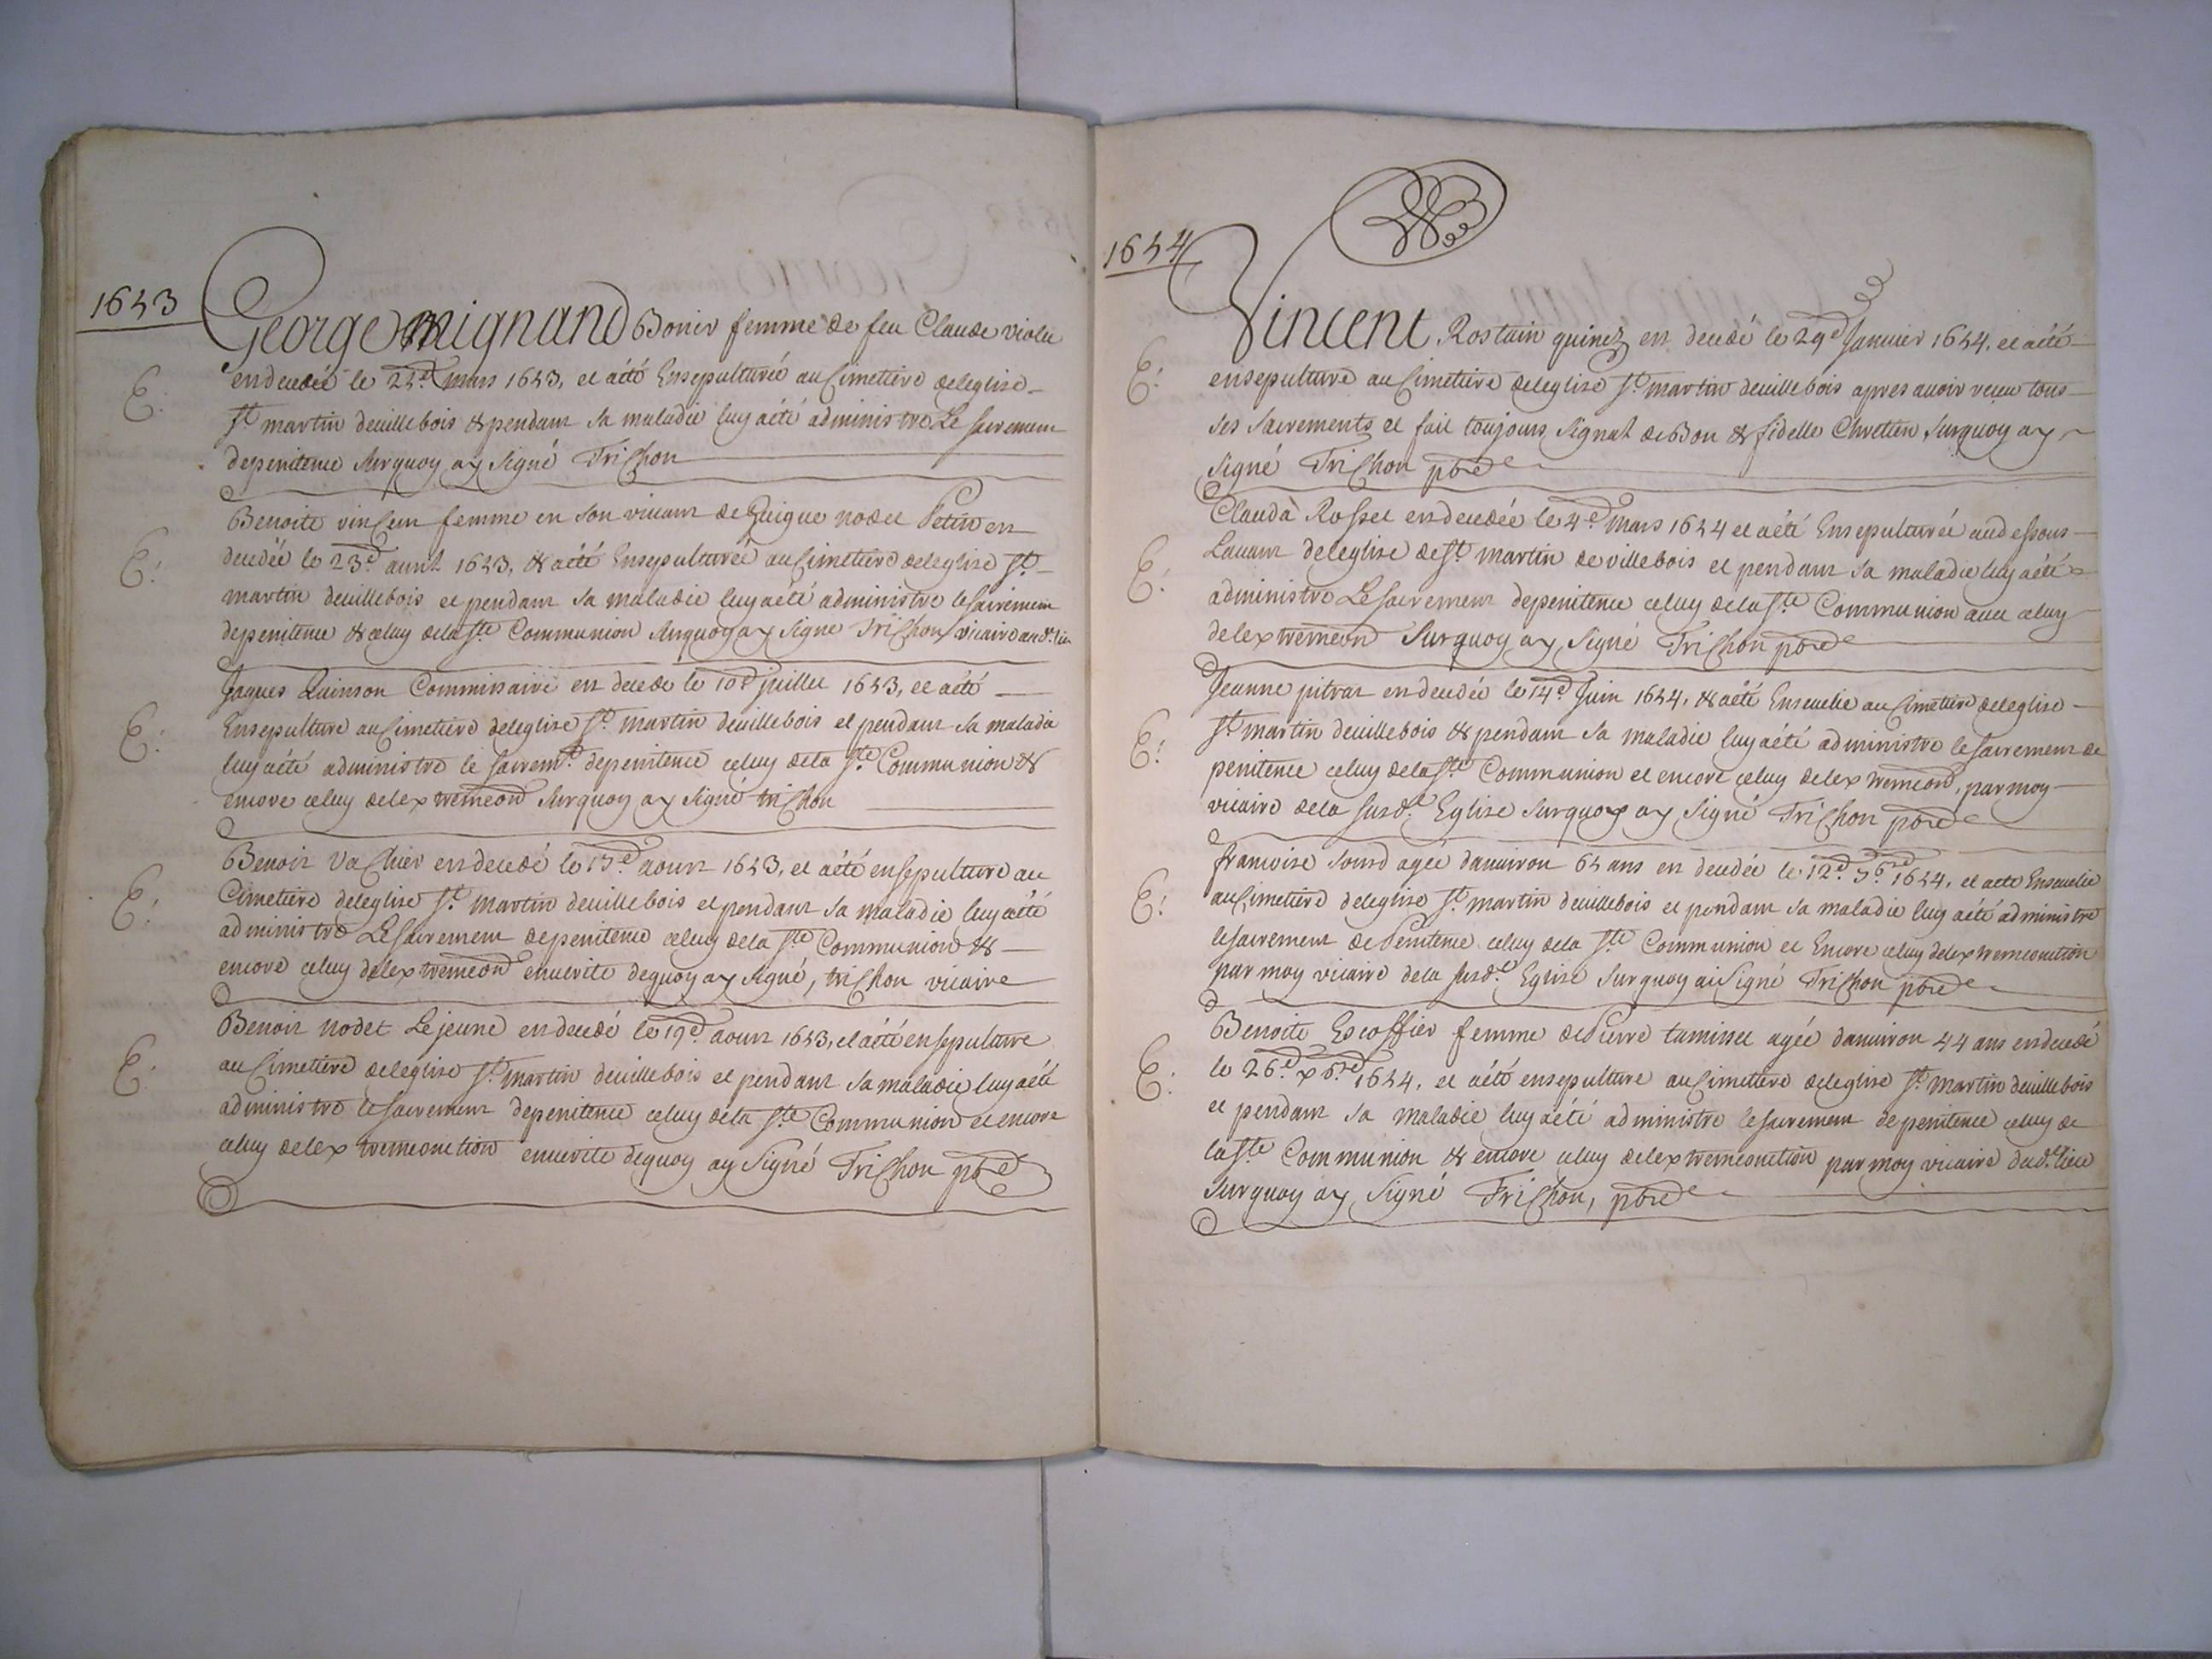 1653
George mignand Bonier femme de feu Claude violet
est decedée le 25.e mars 1653, et aété Ensepulturée au Cimetiere deleglise
St martin deuillebois & pendant sa maladie luy aété administre Le sacrement
depenitence surquoy ay signé Trichon
E:
Benoite vincent femme en son viuant de Guigue nodet Petit est
decedée le 23.e auril 1653, & aété Ensepulturée au Cimetiere deleglise St
martin deuillebois et pendant sa maladie luy aété administre le sacrement
depenitence & celuy dela ste Communion surquoy ay signe Trichon vicaire aud. lieu
E:
Jaques Quinson Commissaire est decede le 10e juillet 1653, et aété
Ensepulture au Cimetiere deleglise St martin deuillebois et pendant sa maladie
luy aété administre le sacremt. depenitence celuy dela ste Communion &
encore celuy delextremeon surquoy ay signé trichon
E:
Benoit Vachier est decedé le 15e aoust 1653, et aété ensepulture au
Cimetiere deleglise St martin deuillebois et pendant sa maladie luy aété
administre Le sacrement depenitence celuy dela ste Communion &
encore celuy delextremeon enuerite dequoy ay signé, trichon vicaire
E:
Benoit nodet Lejeune est decedé le 19e aoust 1653, et aété ensepulture
au Cimetiere deleglise St martin deuillebois et pendant sa maladie luy aété
administre le sacrement depenitence celuy dela ste Communion et encore
celuy delextremeonction enuerite dequoy ay signé Trichon pbre
E:
1654
Vincent Rostain quinet est decedé le 29e Januier 1654, et aété
ensepulture au Cimetiere deleglise St martin deuillebois apres auoir receu tous
ses sacrements et fait toujours signal de Bon & fidelle Chretien surquoy ay
signé Trichon pbre
E:
Clauda Rosset est decedée le 4e mars 1654 et aété Ensepulturée audessous
Lauant deleglise de St martin de villebois et pendant sa maladie luy aété
administre Le sacrement depenitence celuy dela ste Communion auec celuy
delextremeon surquoy ay signé Trichon pbre
E:
Jeanne pitrat est decedée le 14e Juin 1654, & aété Enseuelie au Cimetiere deleglise
St martin deuillebois & pendant sa maladie luy aété administre le sacrement de
penitence celuy dela ste Communion et encore celuy delextremeon, par moy
vicaire dela susd.e Eglise surquoy ay signé Trichon pbre
E:
francoise sourd agée danuiron 65 ans est decedée le 12e 9bre 1654, et aete Enseuelie
au Cimetiere deleglise St martin deuillebois et pendant sa maladie luy aété administre
le sacrement de Penitence celuy dela ste Communion et Encore celuy delextremeonction
par moy vicaire dela susd.e Eglise surquoy ai signé Trichon pbre
E:
Benoite Escoffier femme de Pierre taminet agée danuiron 44 ans est decedé
le 26e xbre 1654, et aété ensepulture au Cimetiere deleglise St martin deuillebois
et pendant sa maladie luy aété administre le sacrement de penitence celuy de
la ste Communion & encore celuy delextremeonction par moy vicaire dud. lieu
surquoy ay signé Trichon, pbre
E: